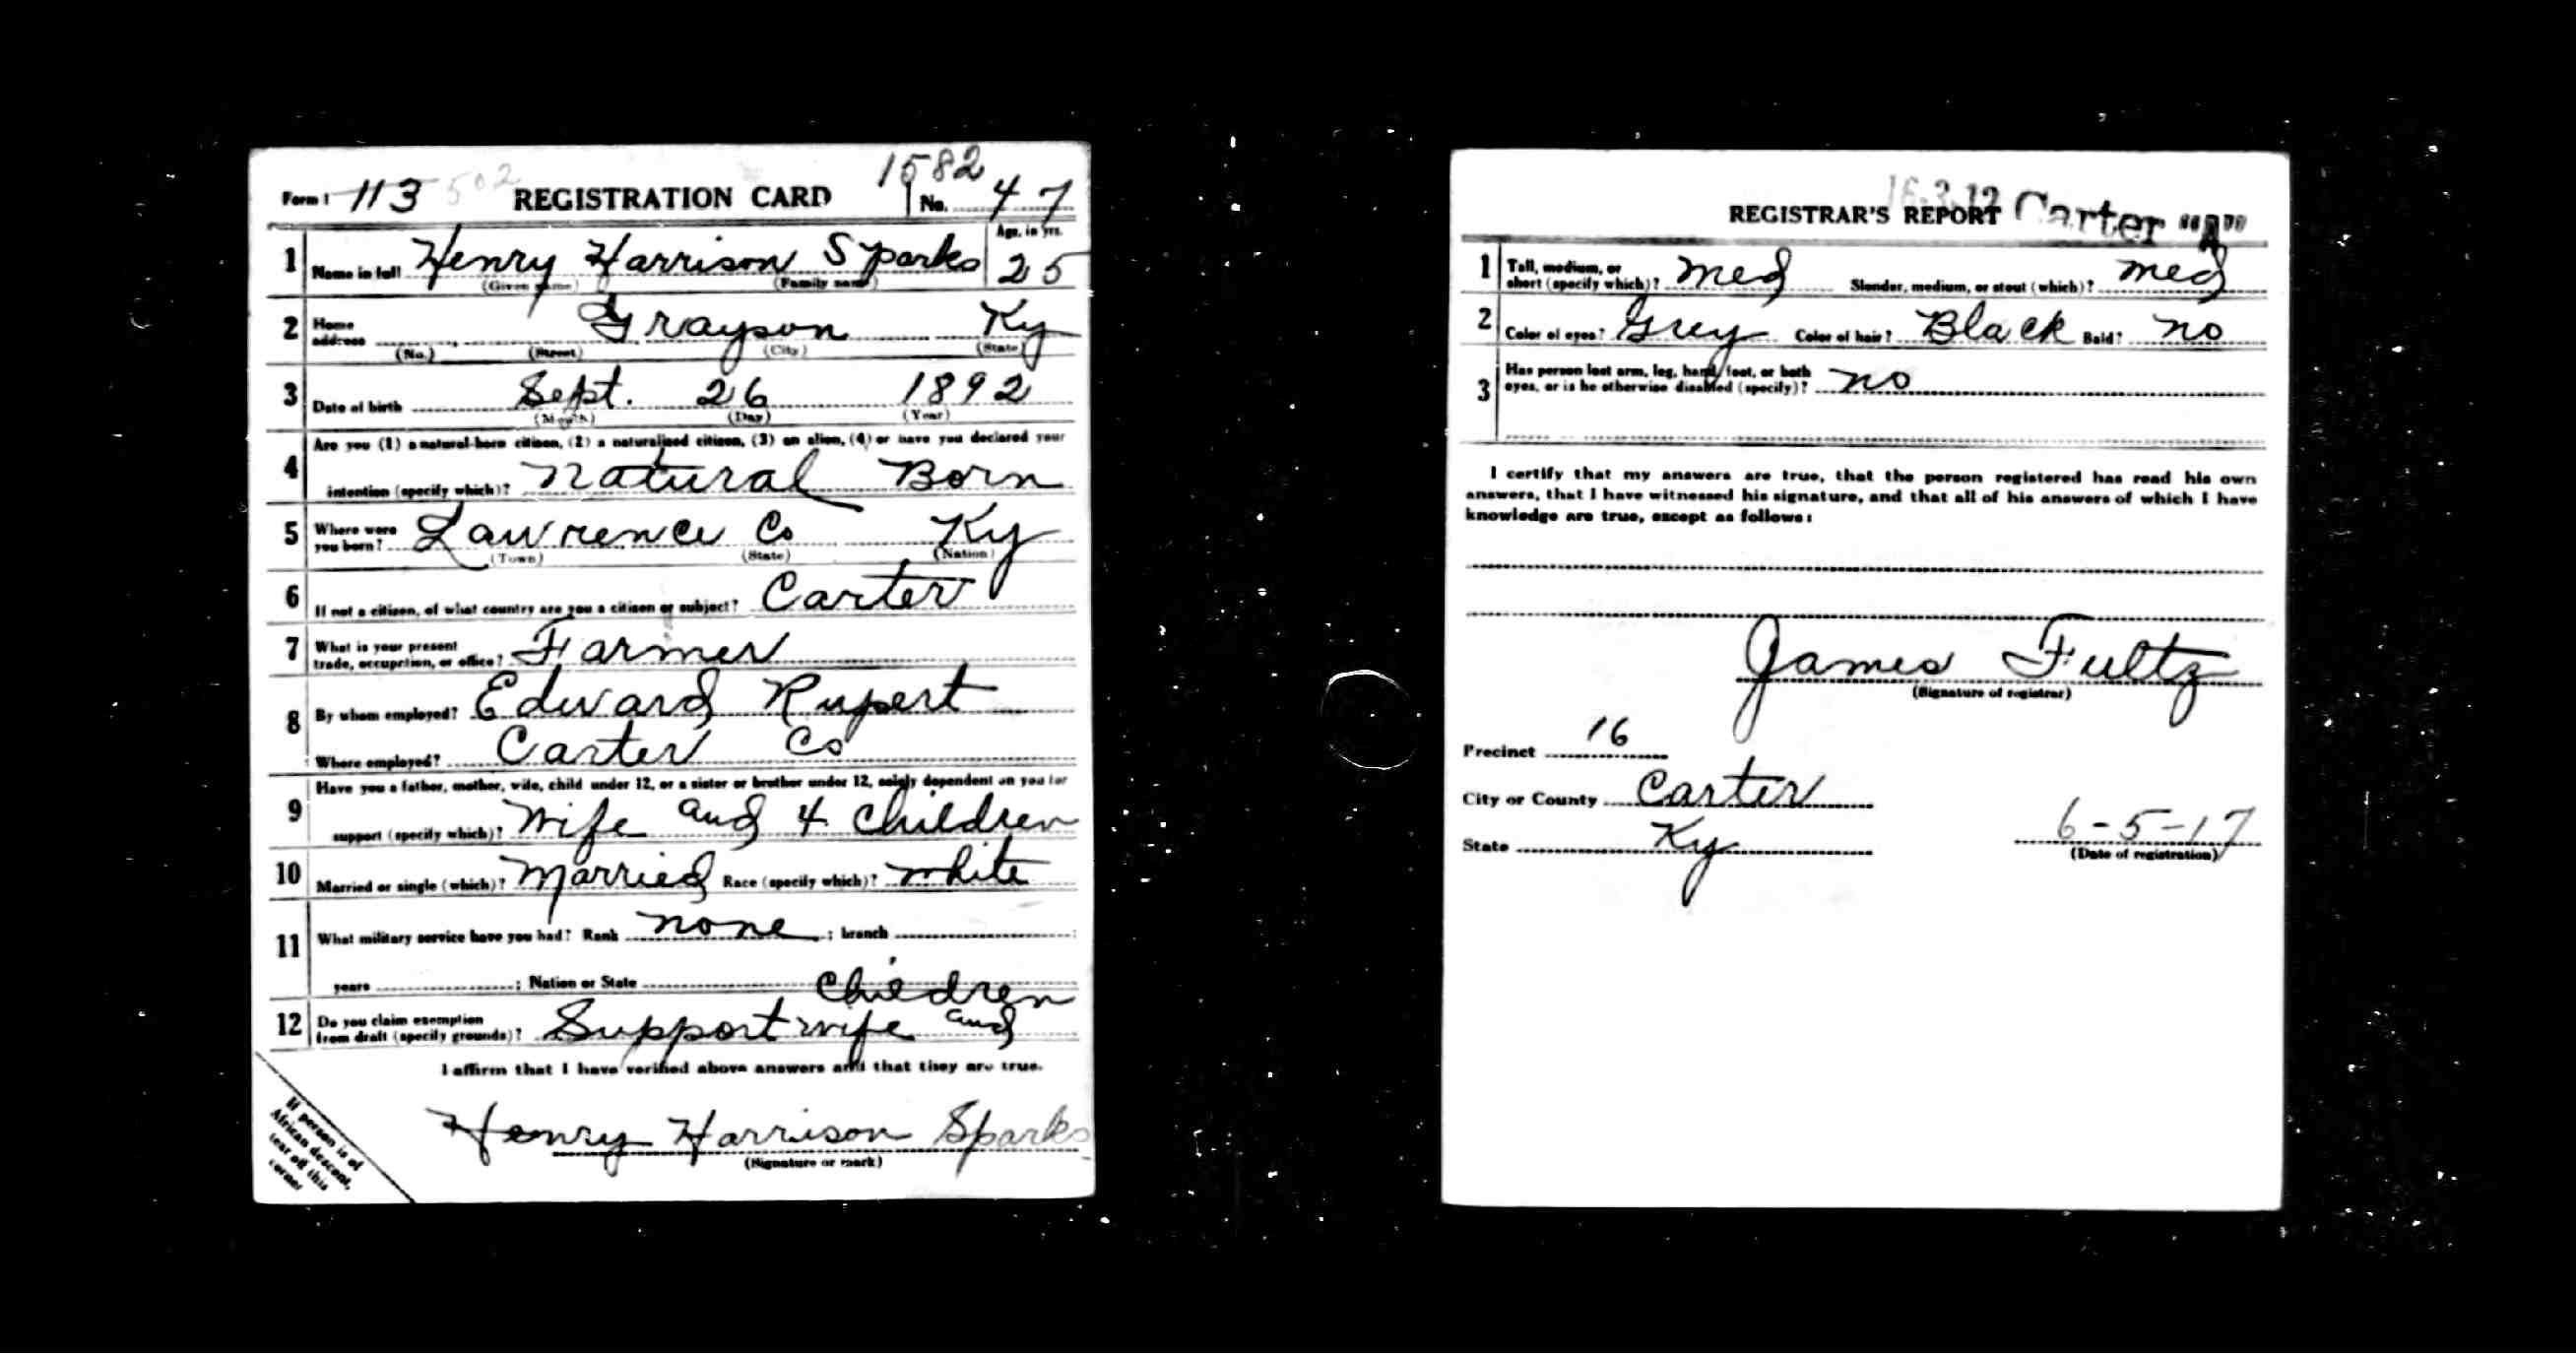 1582
Form 1 113 502 REGISTRATION CARD No. 47
1 Name in full Henry Harrison Sparks Age, in yrs. 25
(Given name) (Family name)
2 Home address Grayson Ky
(No.) (Street) (City) (State)
3 Date of birth Sept. 26 1892
(Month) (Day) (Year)
4 Are you (1) a natural-born citizen, (2) a naturalized citizen, (3) an alien, (4) or have you declared your
intention (specify which)? Natural Born
5 Where were you born? Lawrence Co Ky
(Town) (State) (Nation)
6 If not a citizen, of what country are you a citizen or subject? Carter
7 What is your present trade, occupation, or office? Farmer
8 By whom employed? Edward Rupert
Where employed? Carter Co
9 Have you a father, mother, wife, child under 12, or a sister or brother under 12, solely dependent on you for
support (specify which)? Wife and 4 Children
10 Married or single (which)? Married Race (specify which)? White
11 What military service have you had? Rank none ; branch
years ; Nation or State
Children
12 Do you claim exemption from draft (specify grounds)? Support wife and
I affirm that I have verified above answers and that they are true.
Henry Harrison Sparks
(Signature or mark)
If person is of
African descent,
tear off this
corner
16-3-12 Carter "A"
REGISTRAR'S REPORT
1 Tall, medium, or short (specify which)? Med Slender, medium, or stout (which)? Med
2 Color of eyes? Grey Color of hair? Black Bald? No
3 Has person lost arm, leg, hand, foot, or both
eyes, or is he otherwise disabled (specify)? No
I certify that my answers are true, that the person registered has read his own
answers, that I have witnessed his signature, and that all of his answers of which I have
knowledge are true, except as follows:
James Fultz
(Signature of registrar)
Precinct 16
City or County Carter
State Ky 6-5-17
(Date of registration)